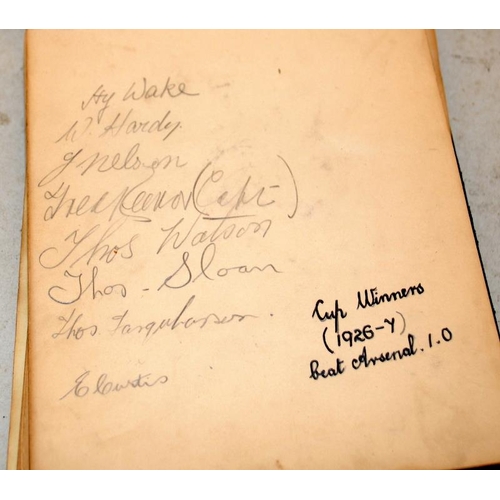 Hy Wake
W. Hardy.
J Nelson
Fred Keenor (Capt)
Thos Watson
Thos - Sloan
Thos. Farquharson.
E Curtis
Cup Winners
(1926-7)
beat Arsenal. 1.0